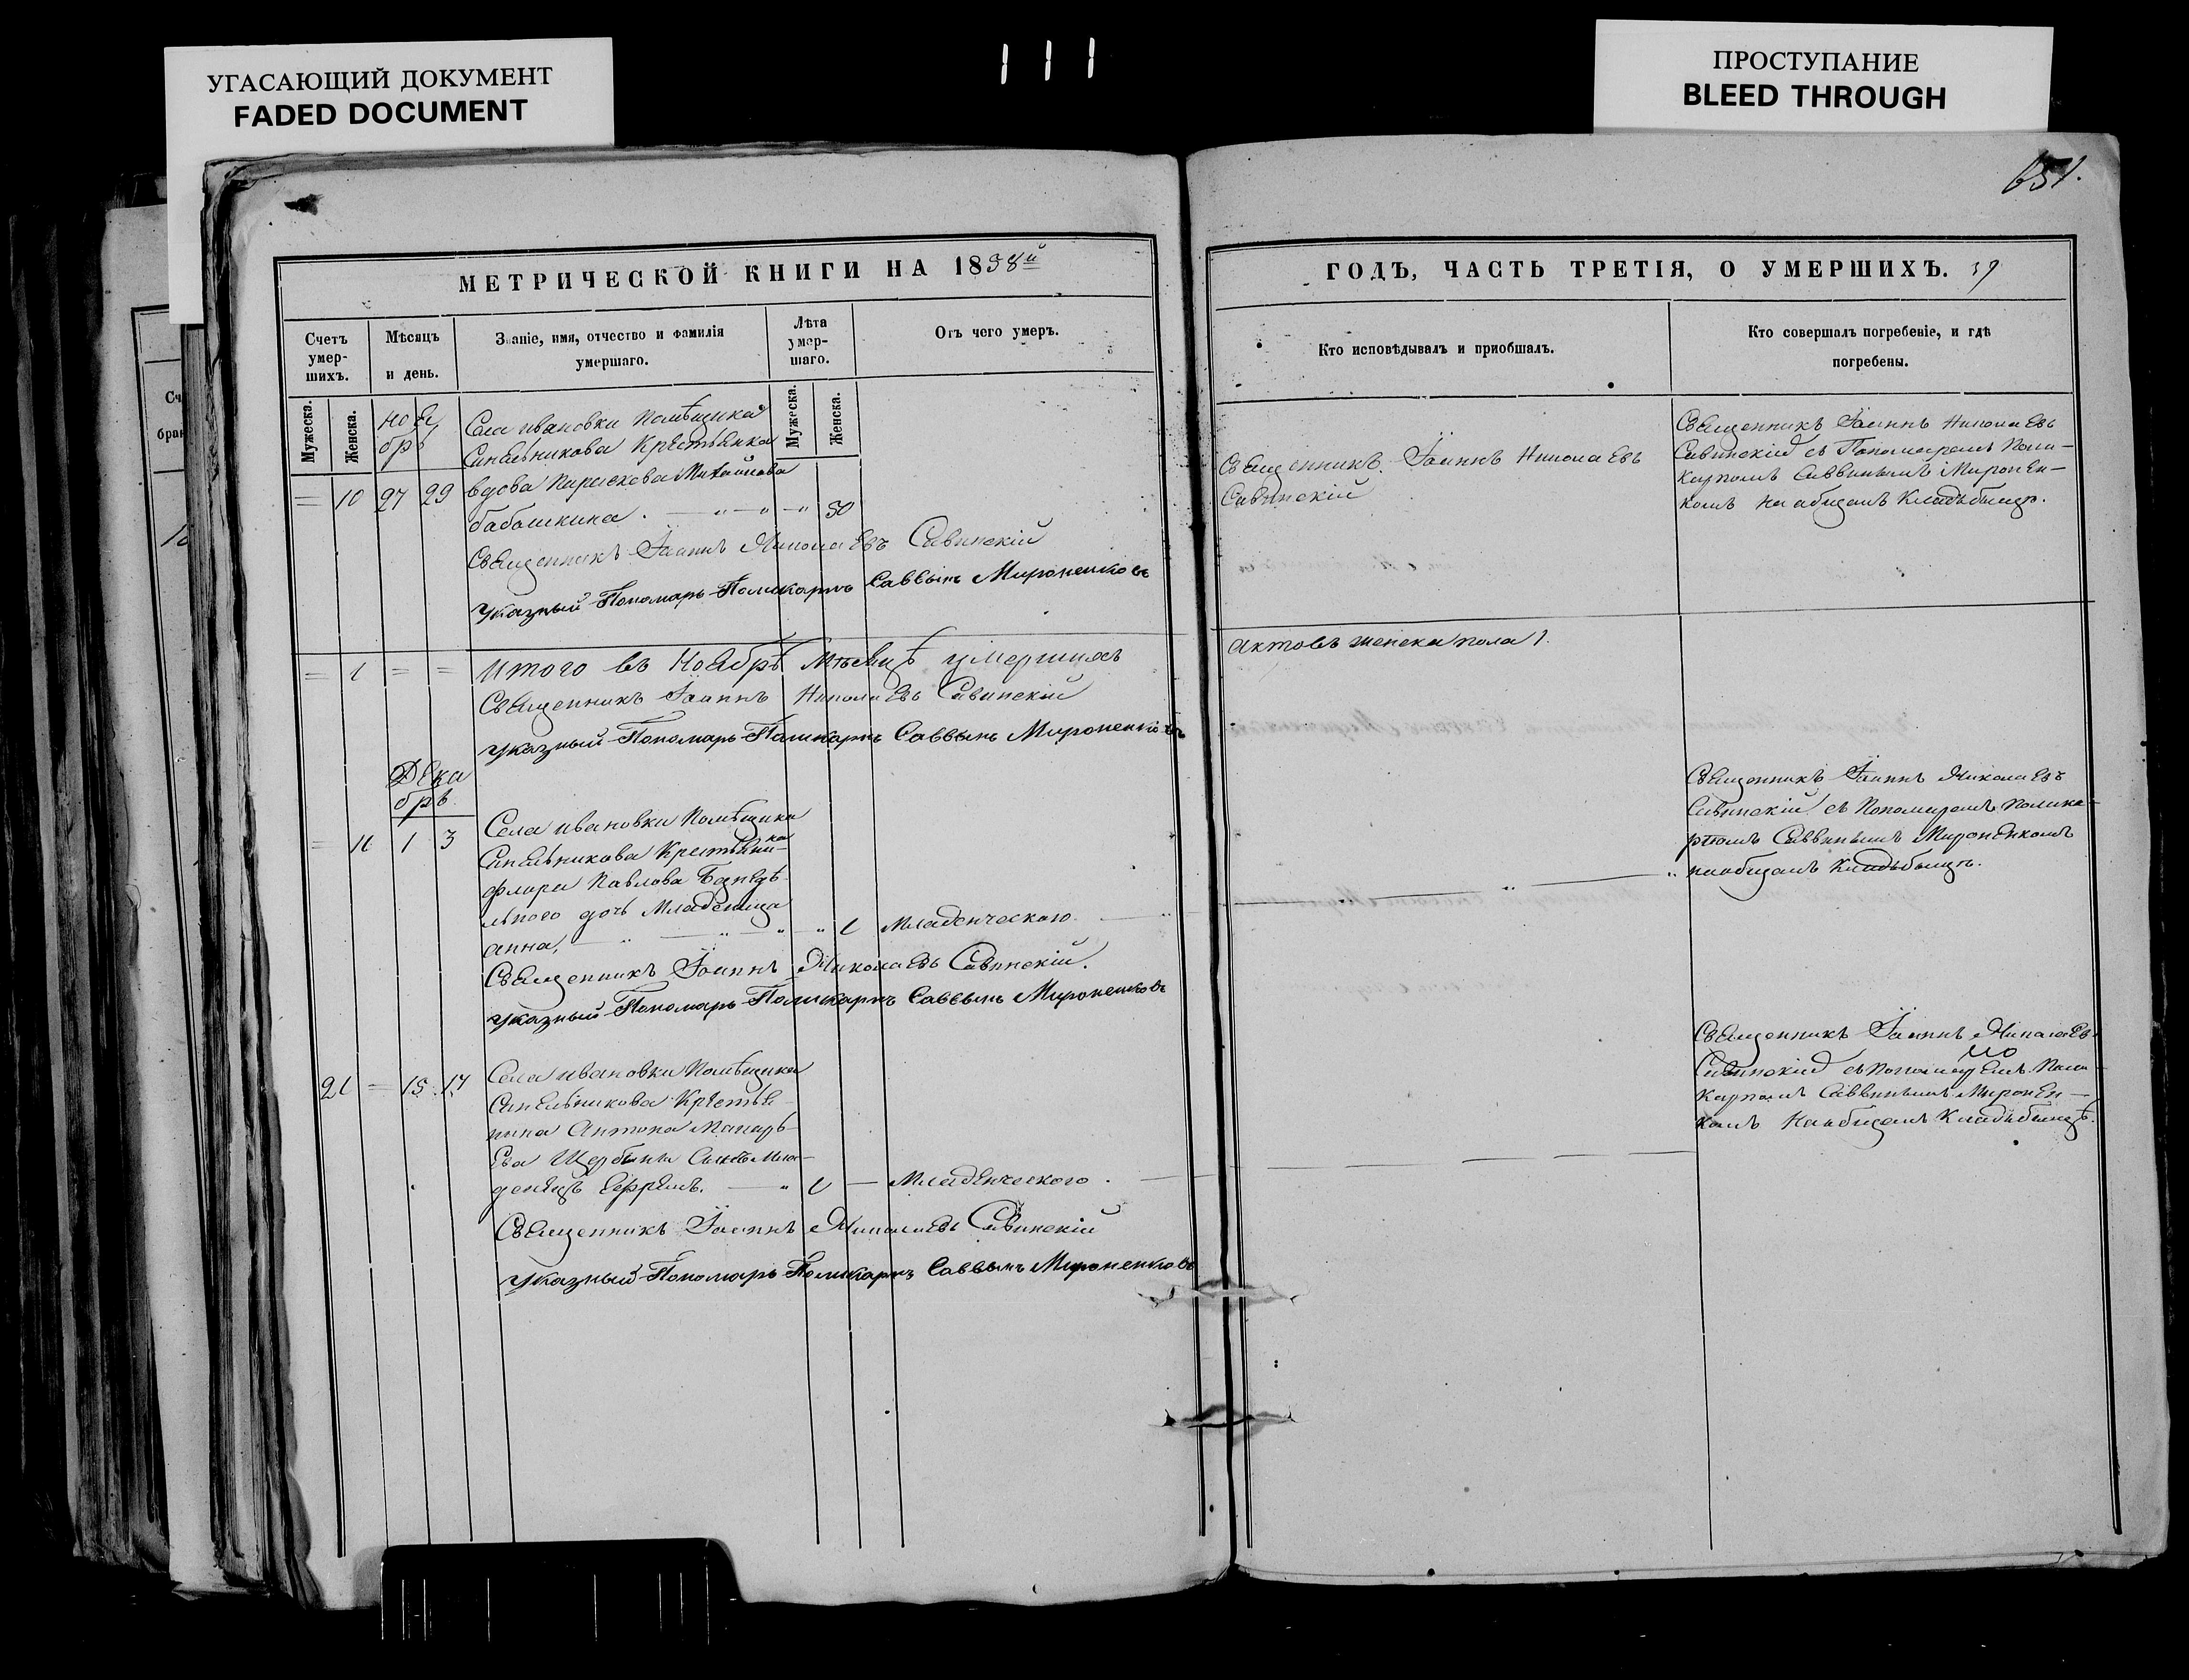 УГАСАЮЩИЙ ДОКУМЕНТ
FADED DOCUMENT
ПРОСТУПАНИЕ
BLEED THROUGH
651.
МЕТРИЧЕСКОЙ КНИГИ НА 1858й
Счетъ умер-шихъ.
Мѣсяцъ и день.
Званіе, имя, отчество и фамилія умершаго.
Лѣта умер-шаго.
Отъ чего умеръ.
Мужеска.
Женска.
Мужеска.
Женска.
Ноя
брь
Села ивановки Помѣщика
Синельникова Крестьянка
= 10 27 29 вдова Параскева Михайлова
бабашкина. 50
Священникъ Іоаннъ Николаевъ Савинскій
Указный Пономарь Поликарпъ Саввынъ Мироненковъ
= 1 = = Итого въ Ноябрѣ Мѣсецѣ умершихъ
Священникъ Іоаннъ Николаевъ Савинскій
Указный Пономарь Поликарпъ Саввынъ Мироненковъ
Дека
брь
Села ивановки Помѣщика
= 11 1 3 Синельникова Крестьяни-на
флора Павлова
льного дочь Младеница
анна, 1 Младенческаго
Священникъ Іоаннъ Николаевъ Савинскій.
Указный Пономарь Поликарпъ Саввынъ Мироненковъ
21 = 15 17 Села ивановки Помѣщика
Синельникова Крестья-
нина Антона Макарь-
ева Щербины Сынъ Мла-
денецъ Ефремъ. 1 — Младенческого.
Священникъ Іоаннъ Николаевъ Савинскій
Указный Пономарь Поликарпъ Саввынъ Мироненковъ
ГОДЪ, ЧАСТЬ ТРЕТІЯ, О УМЕРШИХЪ. 39
Кто исповѣдывалъ и приобшалъ.
Кто совершалъ погребеніе, и гдѣ
погребены.
Священникъ Іоаннъ Николаевъ
Савинскій
Священникъ Іоаннъ Николаевъ
Савинскій съ Пономаремъ Поли-
карпомъ Саввинымъ Миронен-
комъ на абщамъ Кладьбищѣ.
актовъ женска пола 1.
Священникъ Іоаннъ Николаевъ
Савинскій съ Пономаремъ Полика-
рпомъ Саввинымъ Мироненкомъ
наобщамъ Кладьбищѣ.
Священникъ Іоаннъ Николаевъ
Савинскій съ Пономаремъ Поли-
карпомъ Саввинымъ Миронен-
комъ Наобщамъ Кладьбищѣ.